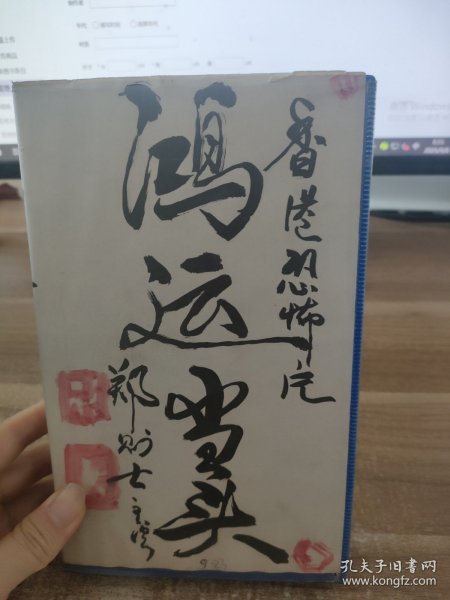 香港恐怖片
鸿运当头
郑则士主演
983
孔夫子旧书网
www.kongfz.com